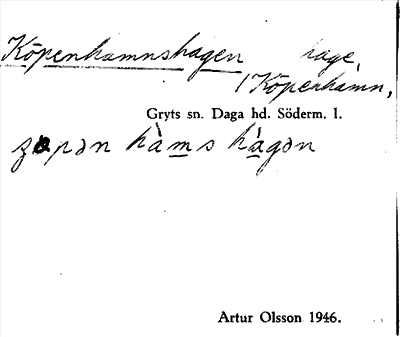 Köpenhamnshagen hage,
/Köpenhamn,
Gryts sn. Daga hd. Söderm. l.
hàms hàgən
Artur Olsson 1946.